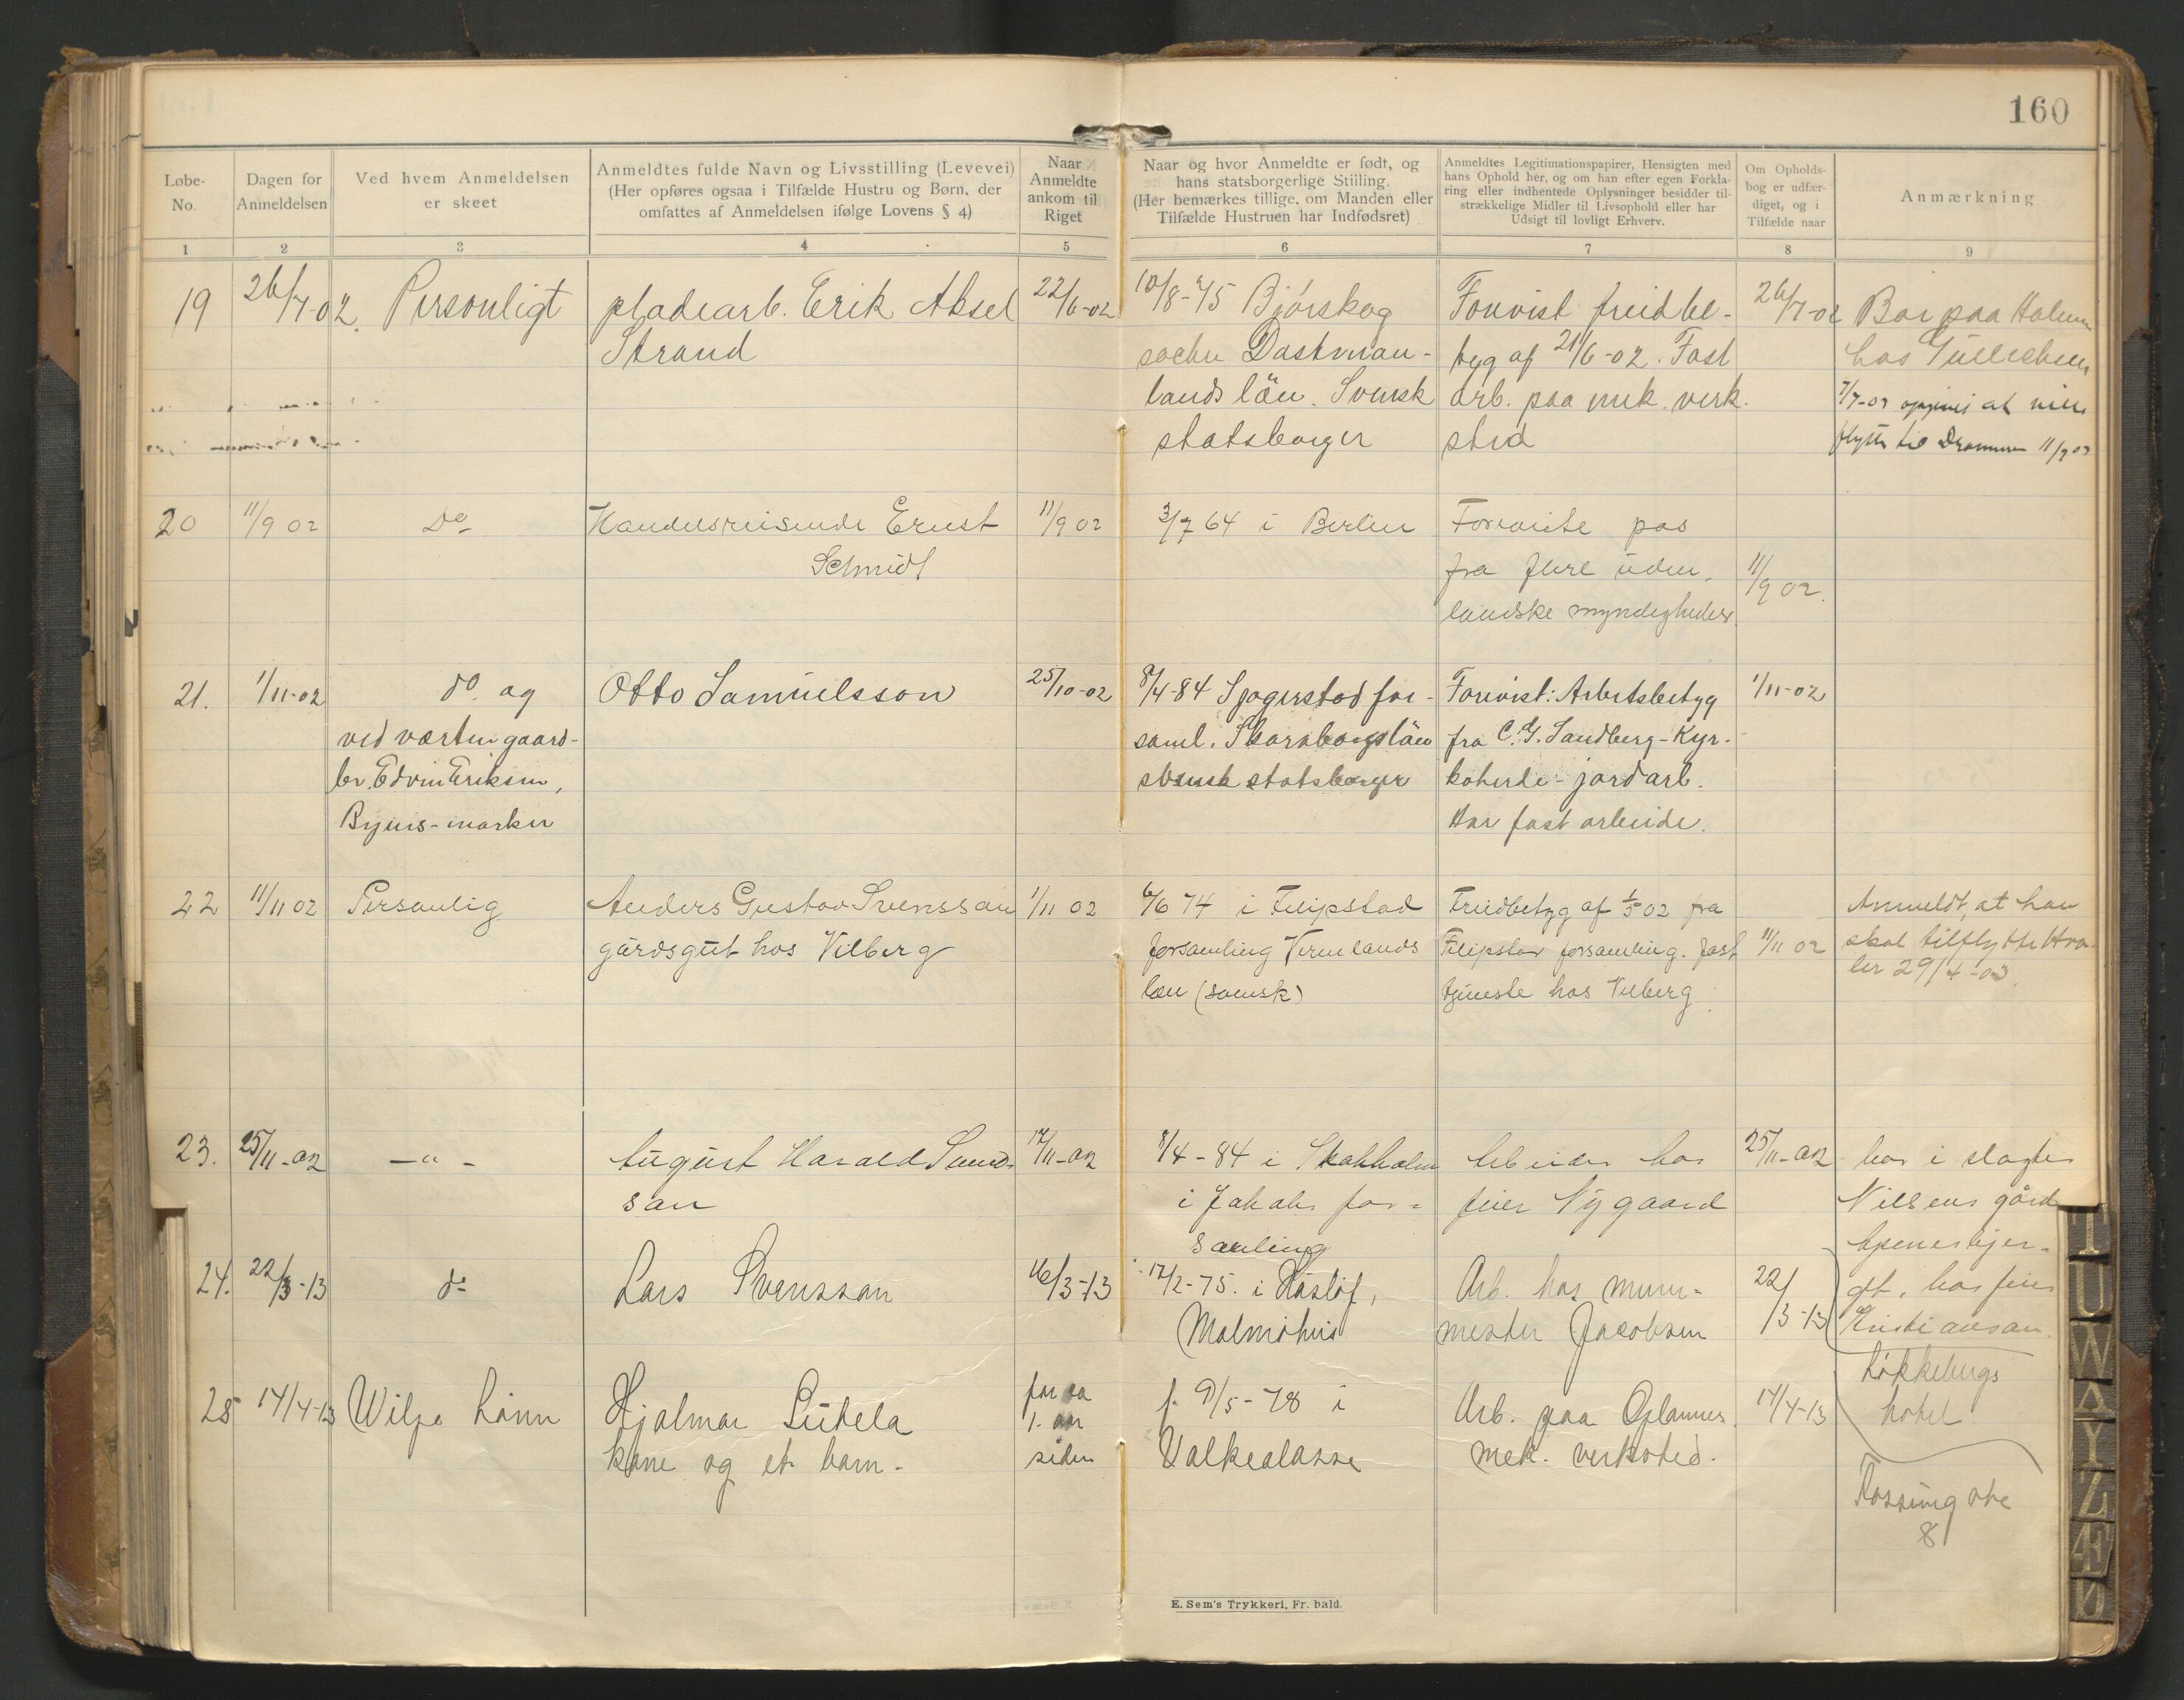 160
Løbe-
No.
Dagen for
Anmeldelsen
Ved hvem Anmeldelsen
er skeet
Anmeldtes fulde Navn og Livsstilling (Levevei)
(Her opføres ogsaa i Tilfælde Hustru og Børn, der
omfattes af Anmeldelsen ifølge Lovens § 4)
Naar
Anmeldte
ankom til
Riget
Naar og hvor Anmeldte er født, og
hans statsborgerlige Stilling.
(Her bemærkes tillige, om Manden eller
Tilfælde Hustruen har Indfødsret)
Anmeldtes Legitimationspapirer, Hensigten med
hans Ophold her, og om han efter egen Forkla-
ring eller indhentede Oplysninger besidder til-
strækkelige Midler til Livsophold eller har
Udsigt til lovligt Erhverv.
Om Opholds-
bog er udfær-
diget, og i
Tilfælde naar
Anmærkning
1 2 3 4 5 6 7 8 9
19
26/7-02.
Personligt
pladearb. Erik Aksel
Strand
22/6-02
10/8-75 Bjørskog
socken
lands län. Svensk
statsborger
Forevist freidbe-
tyg af 21/6-02. Fast
arb. paa mek. verk-
sted
26/7-02
Bor paa Holmen
hos Gullichsen
flytte til Drammen 11/7 03
20
11/9 02
Do
Handelsreisende Ernst
Schmidt
11/9 02
3/7 64 i Berlin
Foreviste pas
fra flere uden-
landske myndigheder.
11/9 02.
21.
1/11-02
do. og
ved værten gaard-
br. Edvin Eriksen,
Byens-marker
Otto Samuelsson
25/10-02
8/4-84 Sjogerstad for-
saml. Skaraborgs län
svensk statsborger
Forevist: Arbetsbetyg
fra C. G. Sandberg - Kyr-
koherde - jordarb.
Har fast arbeide.
1/11-02
22
11/11 02
Personlig
Anders Gustav Svensson
gårdsgut hos Vilberg
1/11 02
6/6 74 i Filipstad
forsamling Vermlands
læn (svensk)
Freidbetyg af 1/5 02 fra
Filipstad forsamling. fast
tjeneste hos Vilberg
11/11 02
Anmeldt, at han
skal tilflytte Hva-
ler 29/4-03.
23.
25/11-02
—"-
August Harald Sund-
son
17/11-02
8/4-84 i Stokholm
i Jakobs for-
samling
Arbeider hos
feier Nygaard
25/11-02
bor i slagter
Nilsens gård
24.
22/3-13
do
Lars Svensson
16/3-13
17/2-75. i Håslöf,
Malmöhus
Arb. hos mur-
mester Jacobsen
22/3-13
gt, hos feier
Kristiansen
25
14/4-13
Wilge Lönn
Hjalmar Sutela
kone og et barn-
for ca
1. aar
siden
f. 9/5-78 i
Valkealasse
Arb. paa
mek. verksted.
14/4-13
Løkkebergs
hotel
8
E. Sem's Trykkeri, Fr. hald.
T
U
W
Y
Z
Æ
Ø